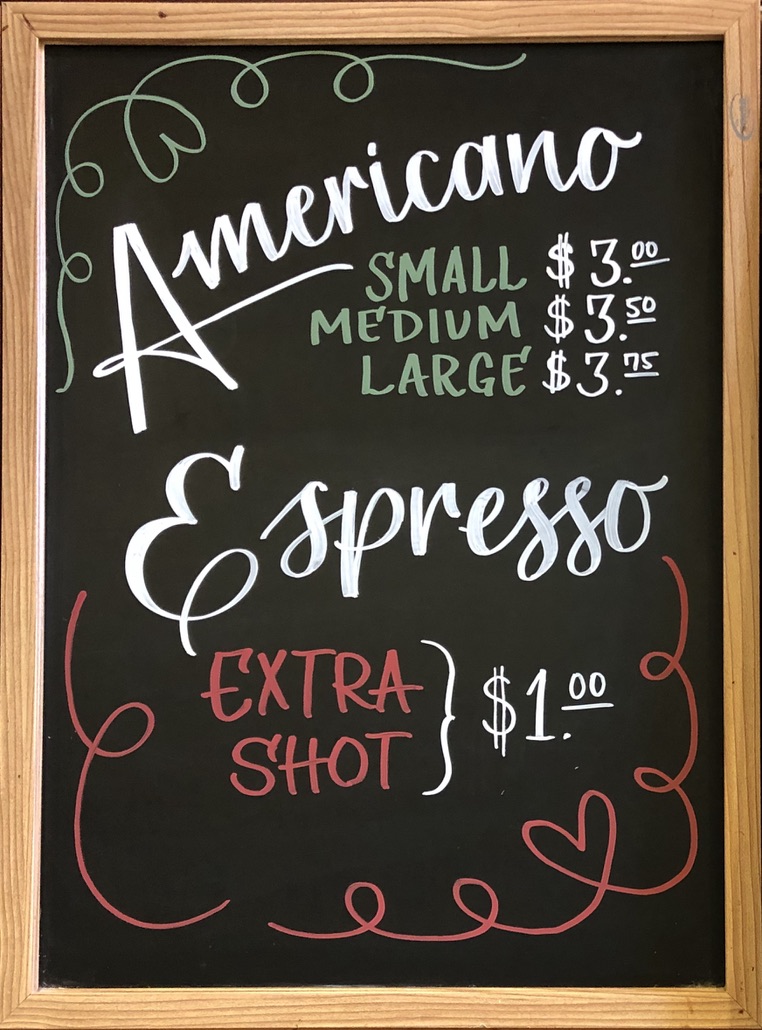 Americano
SMALL $3.00
MEDIUM $3.50
LARGE $3.75
Espresso
EXTRA
SHOT } $1.00